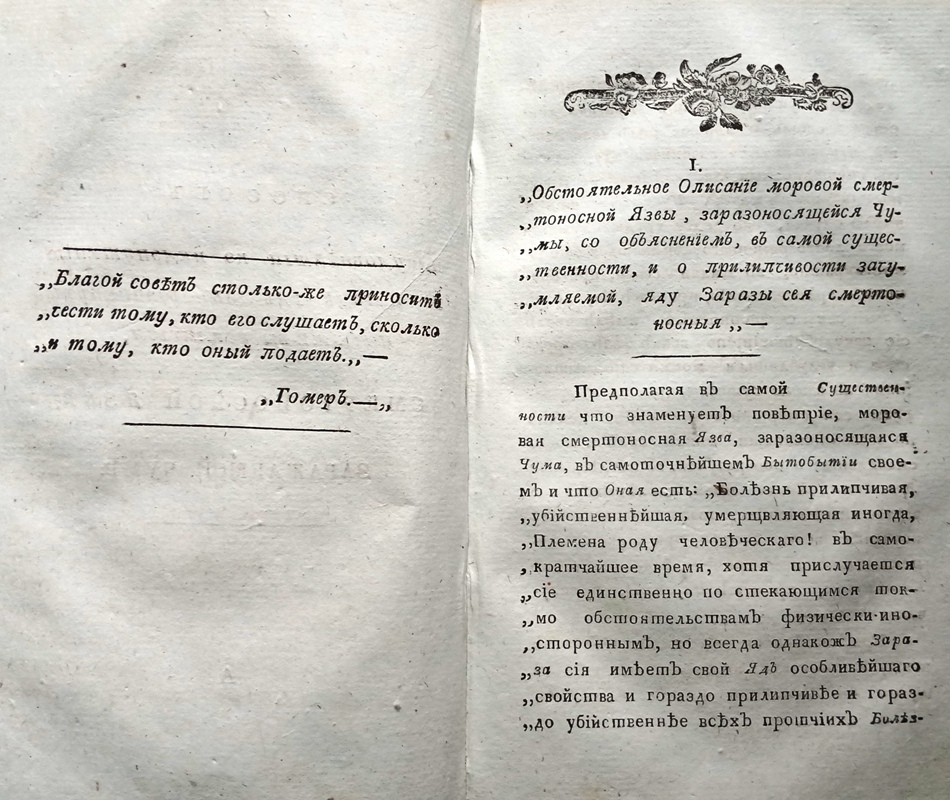 „Благой совѣтъ столько-же приноситъ
„чести тому, кто его слушаетъ, сколько
„и тому, кто оный подаетъ.„—
„Гомеръ.—„
I.
„Обстоятельное Описанїе моровой смер-
„тоносной Язвы, заразоносящейся Чу-
„мы, со объясненїемъ, въ самой сущес-
„твенности, и о прилипчивости загу-
„мляемой, яду Заразы сея смерто-
носныя „—
Предполагая въ самой Существен-
ности что знаменуетъ повѣтріе, моро-
вая смертоносная Язва, заразоносящаяся
Чума, въ самоточнѣйшемъ Бытобытїи свое-
мъ и что Оная есть: „Болѣзнь прилипчивая,
„убійственнѣйшая, умерщвляющая иногда,
„Племена роду человѣческаго! въ само-
„кратчайшее время, хотя прислучается
„сіе единственно по стекающимся ток-
„мо обстоятельствамъ физически-ино-
„стороннымъ, но всегда однакожъ Зара-
„за сія имѣетъ свой Ядъ особливѣйшаго
„свойства и гораздо прилипчивѣе и гораз-
„до убійственнѣе всѣхъ протчіихъ Болѣз-